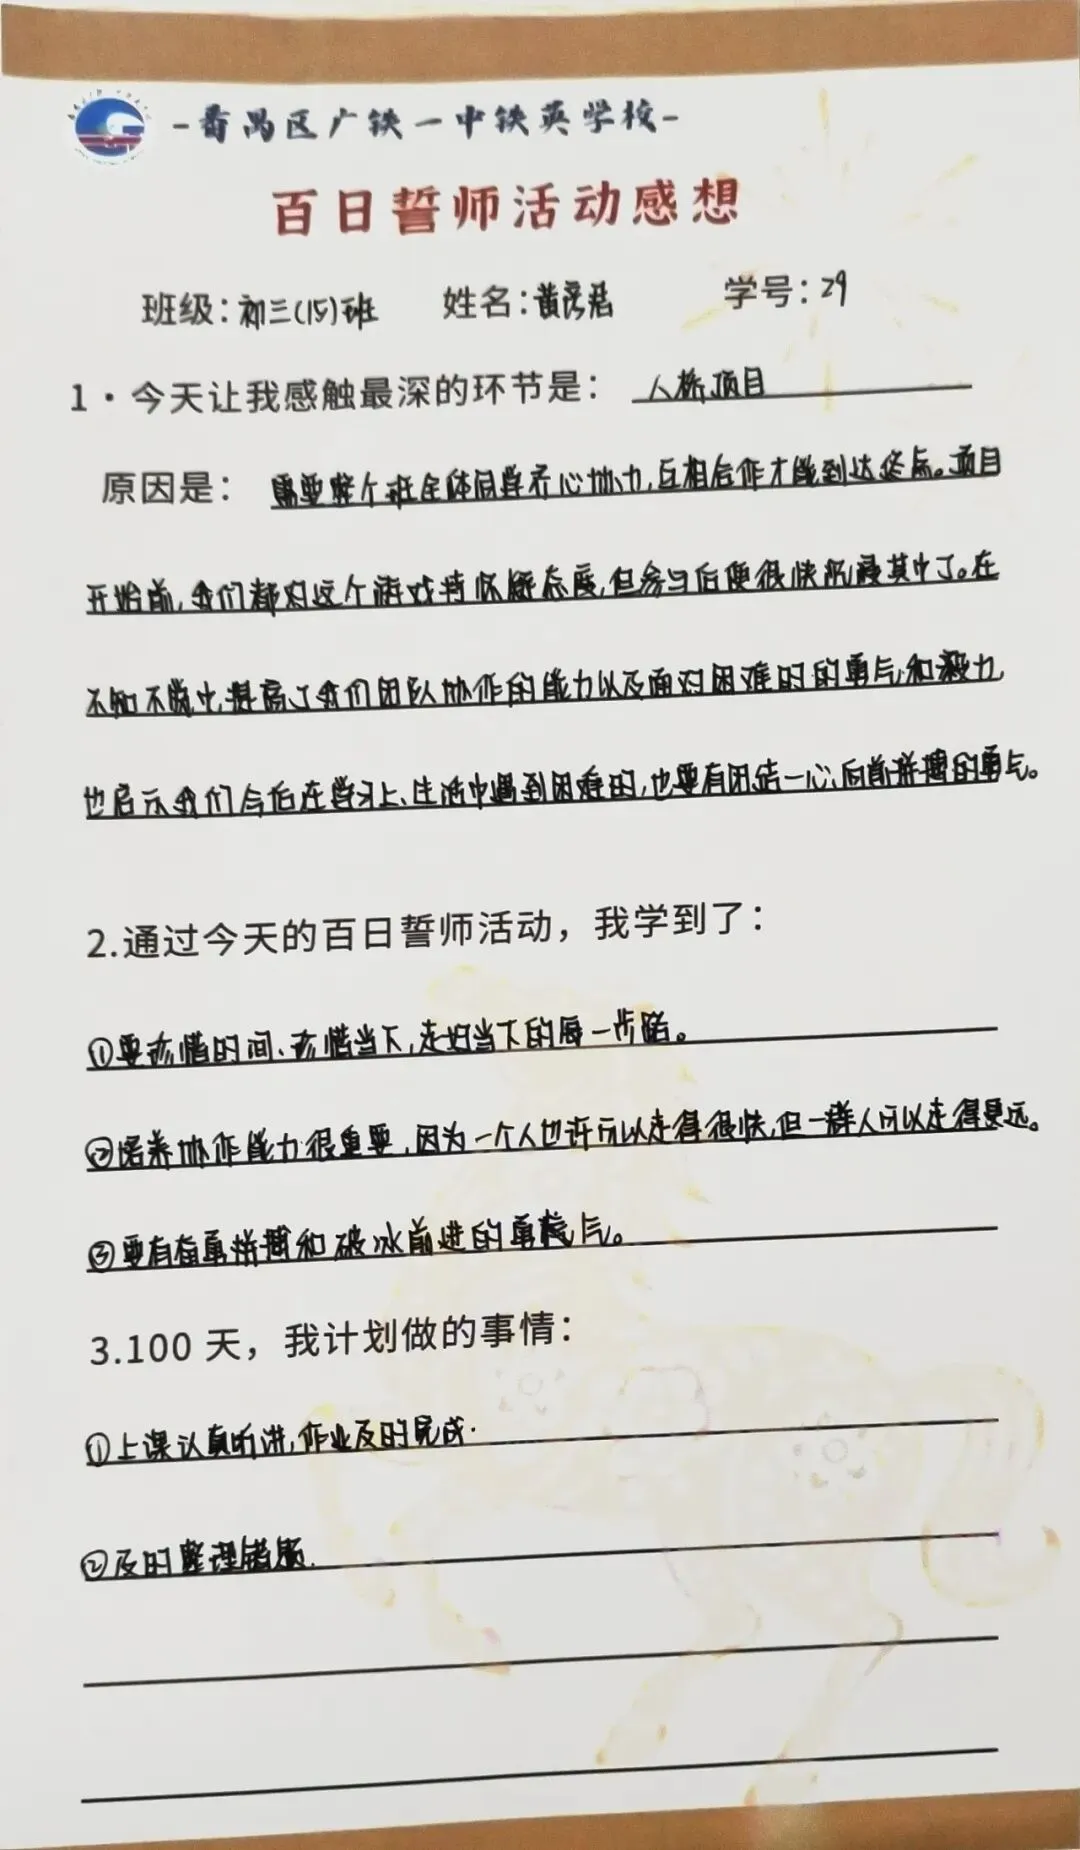 -番禺区广铁一中铁英学校-
百日誓师活动感想
班级：初三(15)班 姓名：黄彦君 学号：29
1·今天让我感触最深的环节是：人桥项目
原因是：需要整个班全体同学齐心协力，互相合作才能到达终点。项目
开始前，我们都对这个游戏持怀疑态度，但参与后便很快沉浸其中了。在
不知不觉中，提高了我们团队协作的能力以及面对困难时的勇气和毅力，
也启示我们今后在学习上、生活中遇到困难时，也要有团结一心、向前拼搏的勇气。
2.通过今天的百日誓师活动，我学到了：
①要珍惜时间、珍惜当下，走好当下的每一步路。
②培养协作能力很重要，因为一个人也许可以走得很快，但一群人可以走得更远。
③要有奋勇拼搏和破冰前进的勇气。
3.100 天，我计划做的事情：
①上课认真听讲，作业及时完成.
②及时整理错题.